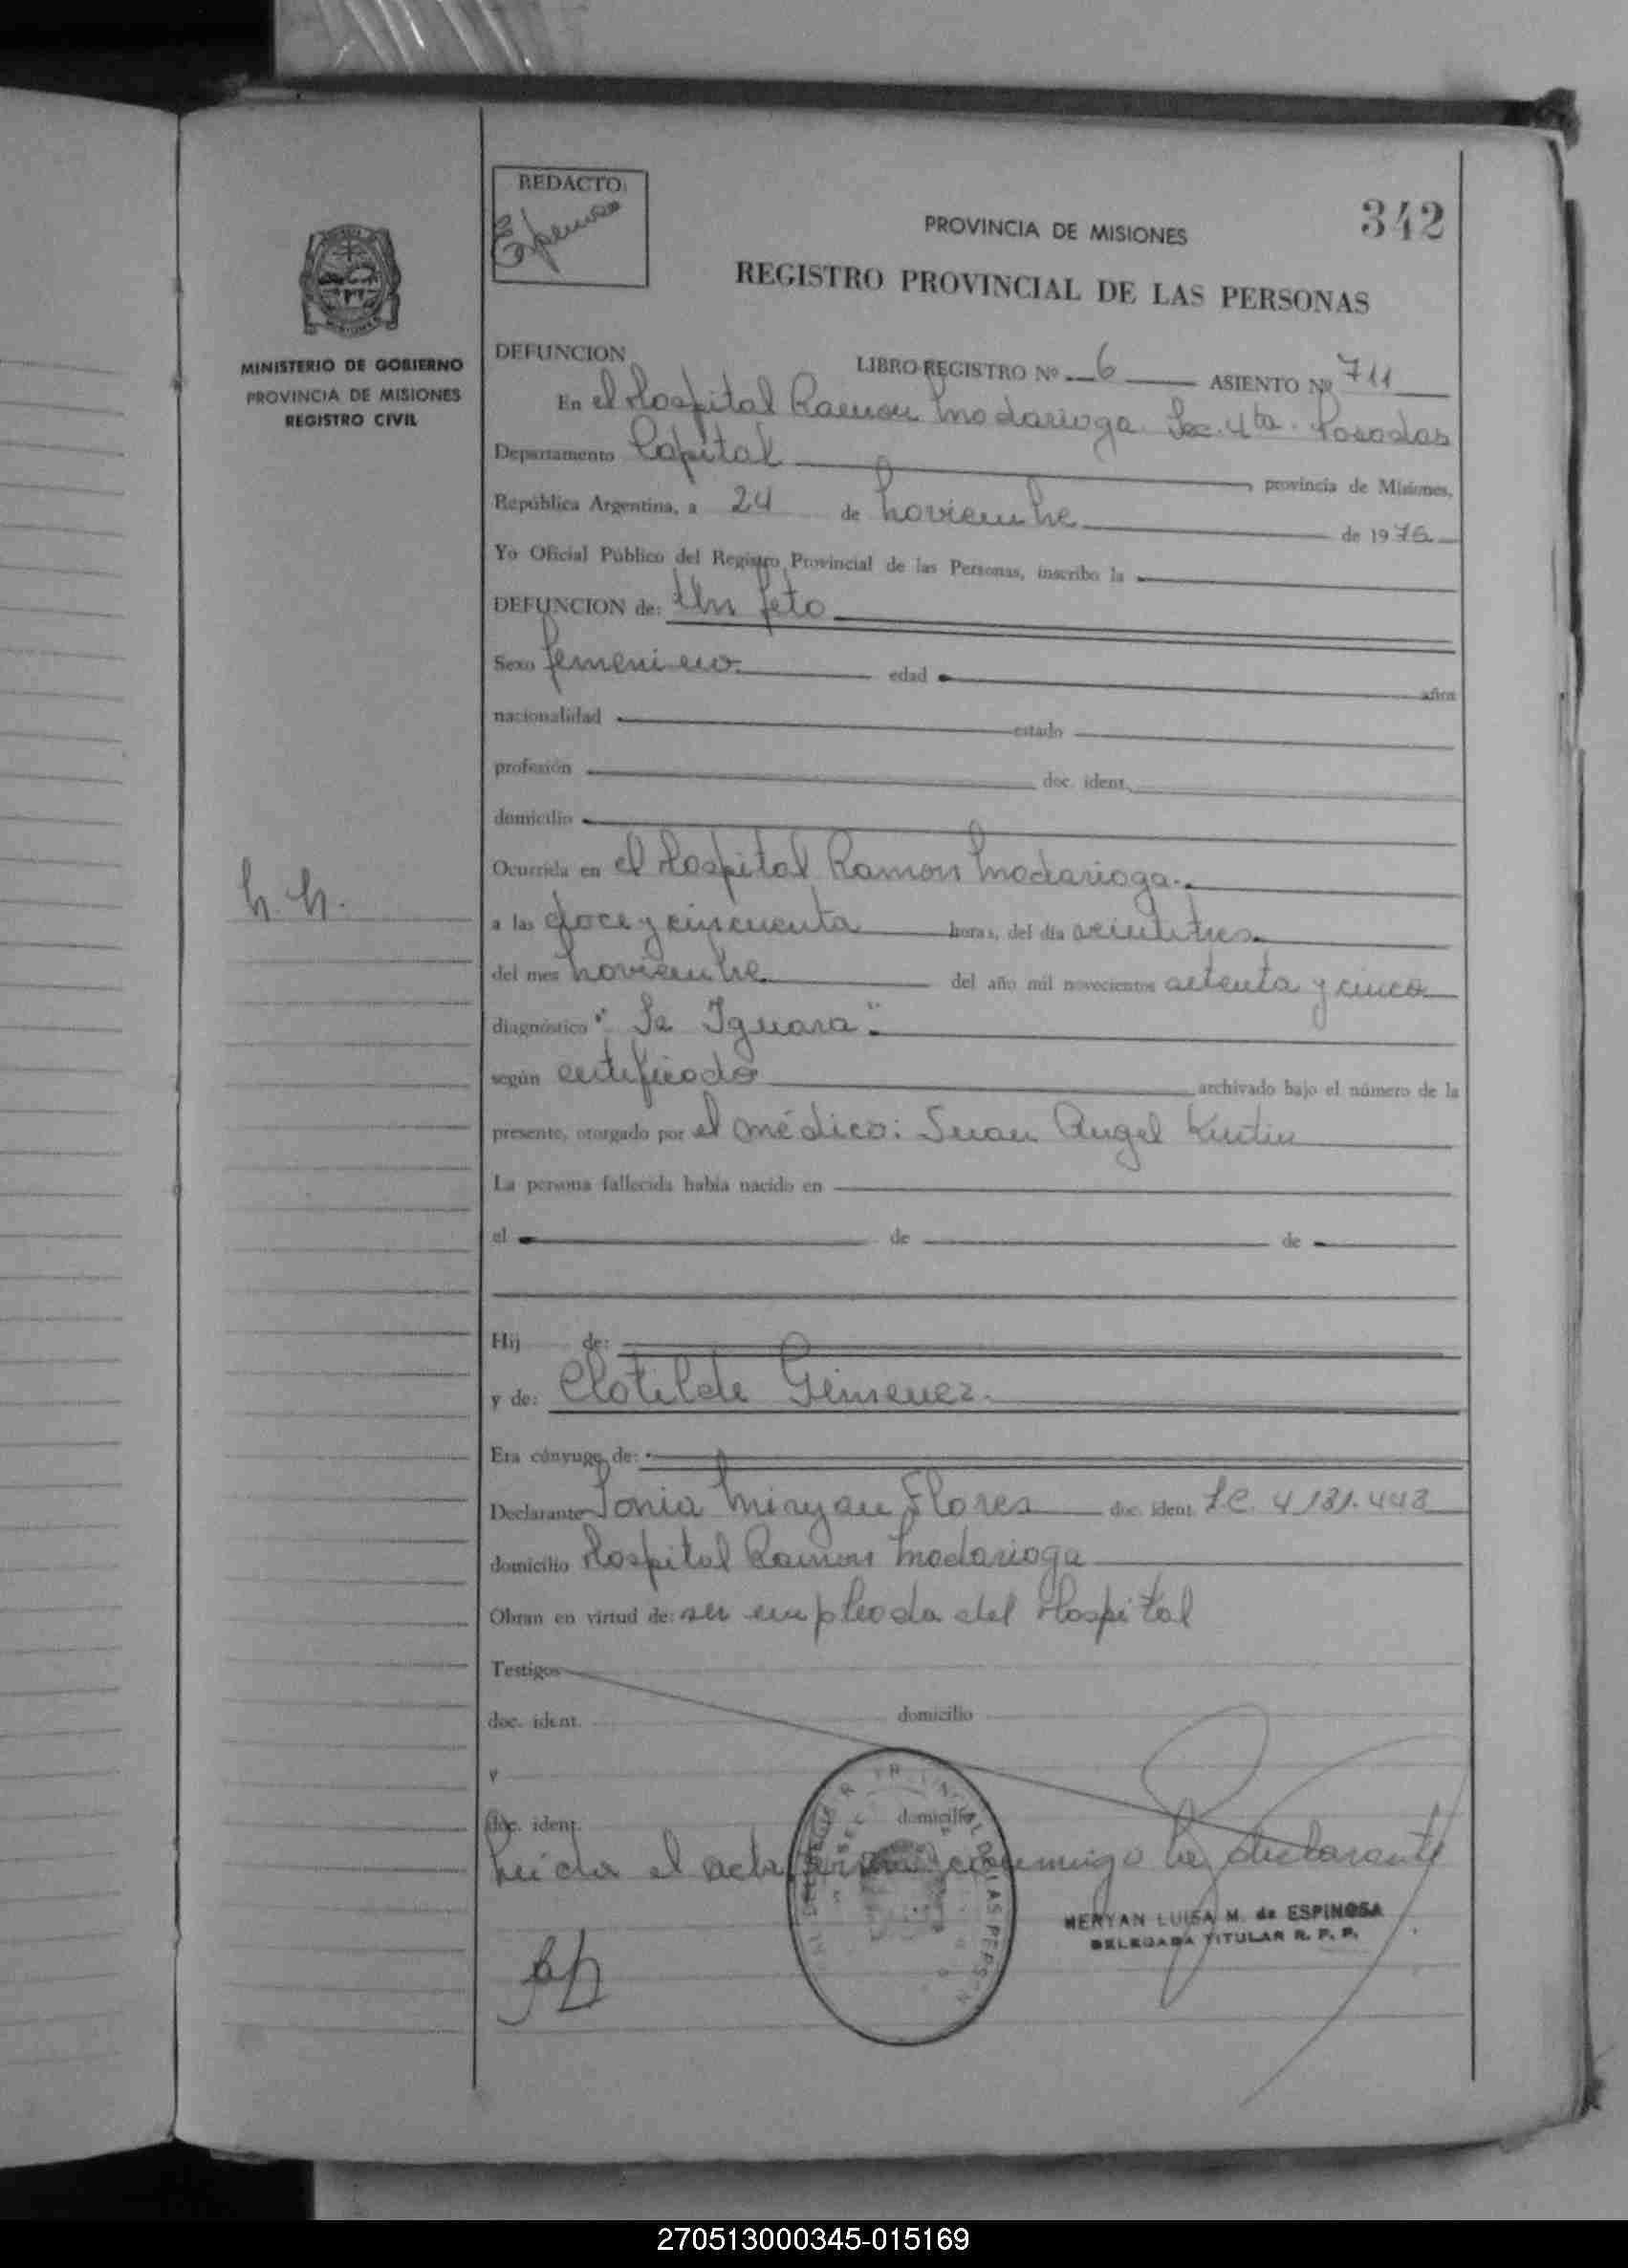 REDACTO:
342
PROVINCIA DE MISIONES
REGISTRO PROVINCIAL DE LAS PERSONAS
MINISTERIO DE GOBIERNO
PROVINCIA DE MISIONES
REGISTRO CIVIL
DEFUNCION
LIBRO-REGISTRO Nº 6 ASIENTO Nº 711
En el Hospital Ramon Madariaga. Sec. 4ta. Posadas
Departamento Capital, provincia de Misiones,
República Argentina, a 24 de noviembre de 1976
Yo Oficial Público del Registro Provincial de las Personas, inscribo la
DEFUNCION de: Un feto
Sexo femenino edad años
nacionalidad estado
profesión doc. ident.
domicilio
Ocurrida en el Hospital Ramon Madariaga.
n.n.
a las doce y cincuenta horas, del día veintitres
del mes noviembre del año mil novecientos setenta y cinco
diagnóstico "Se Ignora"
según certificado archivado bajo el número de la
presente, otorgado por el médico: Juan Angel
La persona fallecida había nacido en
el de de
Hij de:
y de: Clotilde Gimenez.
Era cónyuge de:
Declarante Sonia Miryan Flores doc. ident. L.C. 4131.443
domicilio Hospital Ramon Madariaga
Obran en virtud de: ser empleada del Hospital
Testigos
doc. ident. domicilio
y
doc. ident. domicilio
Leida el acta firma conmigo la declarante
MERYAN LUISA M. de ESPINOSA
DELEGADA TITULAR R. P. P.
270513000345-015169